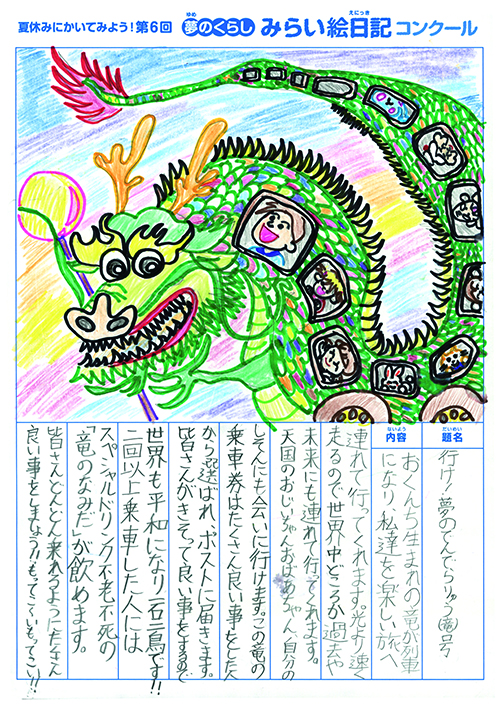 夏休みにかいてみよう！第6回 夢のくらし みらい絵日記 コンクール
ゆめ
えにっき
だいめい
題名
行け！夢のてんでらりゅう 号
ないよう
内容
おくんち生まれの竜が列車
になり、私達を楽しい旅へ
連れて行ってくれます。光より速く
走るので世界中どころか過去や
未来にも連れて行ってくれます。
天国のおじいちゃんおばあちゃん、自分の
しそんにも会いに行けます。この竜の
乗車券はたくさん良い事をした人
から選ばれ、ポストに届きます。
皆さんがきそって良い事をするので
世界も平和になり一石二鳥です!!
二回以上乗車した人には
スペシャルドリンク不老不死の
「竜のなみだ」が飲めます。
皆さんどんどん乗れるようにたくさん
良い事をしましょう!!もってこーいもってこい!!